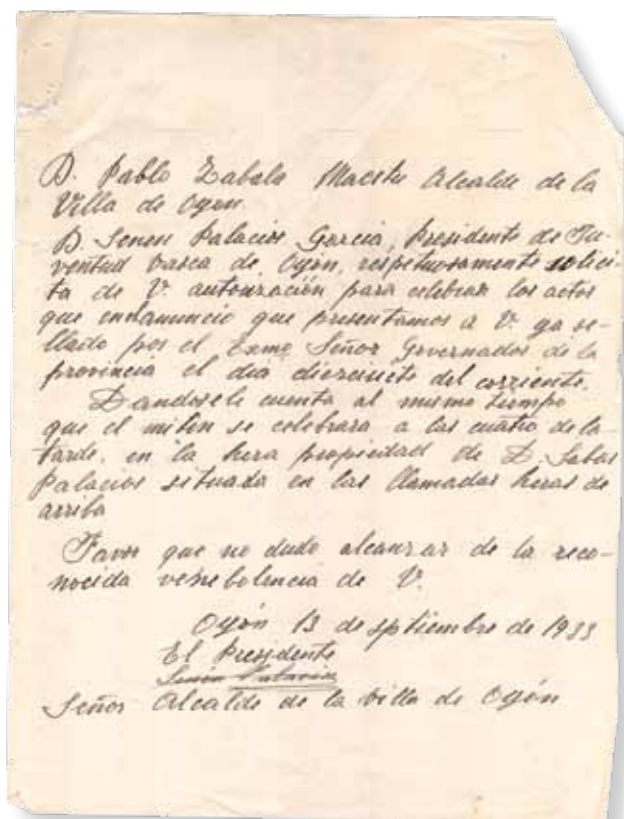 D. Pablo Zabala Maestu Alcalde de la
Villa de Oyon.
D Senen Palacios Garcia, Presidente de Ju-
ventud Vasca de Oyón, respetuosamente solici-
ta de V. autorización para celebrar los actos
que enelanuncio que presentamos a V. ya se-
llado por el Exmo Señor Governador de la
provincia el dia diecicinco del corriente.
Dandosele cuenta al mismo tiempo
que el mitin se celebrara a las cuatro de la
tarde, en la hera propiedad de D. Sabas
Palacios situada en las llamadas heras de
arriba
Favor que no dudo alcanzar de la reco-
nocida venebolencia de V.
Oyón 13 de septiembre de 1933
El Presidente
Senen Palacios
Señor Alcalde de la villa de Oyón